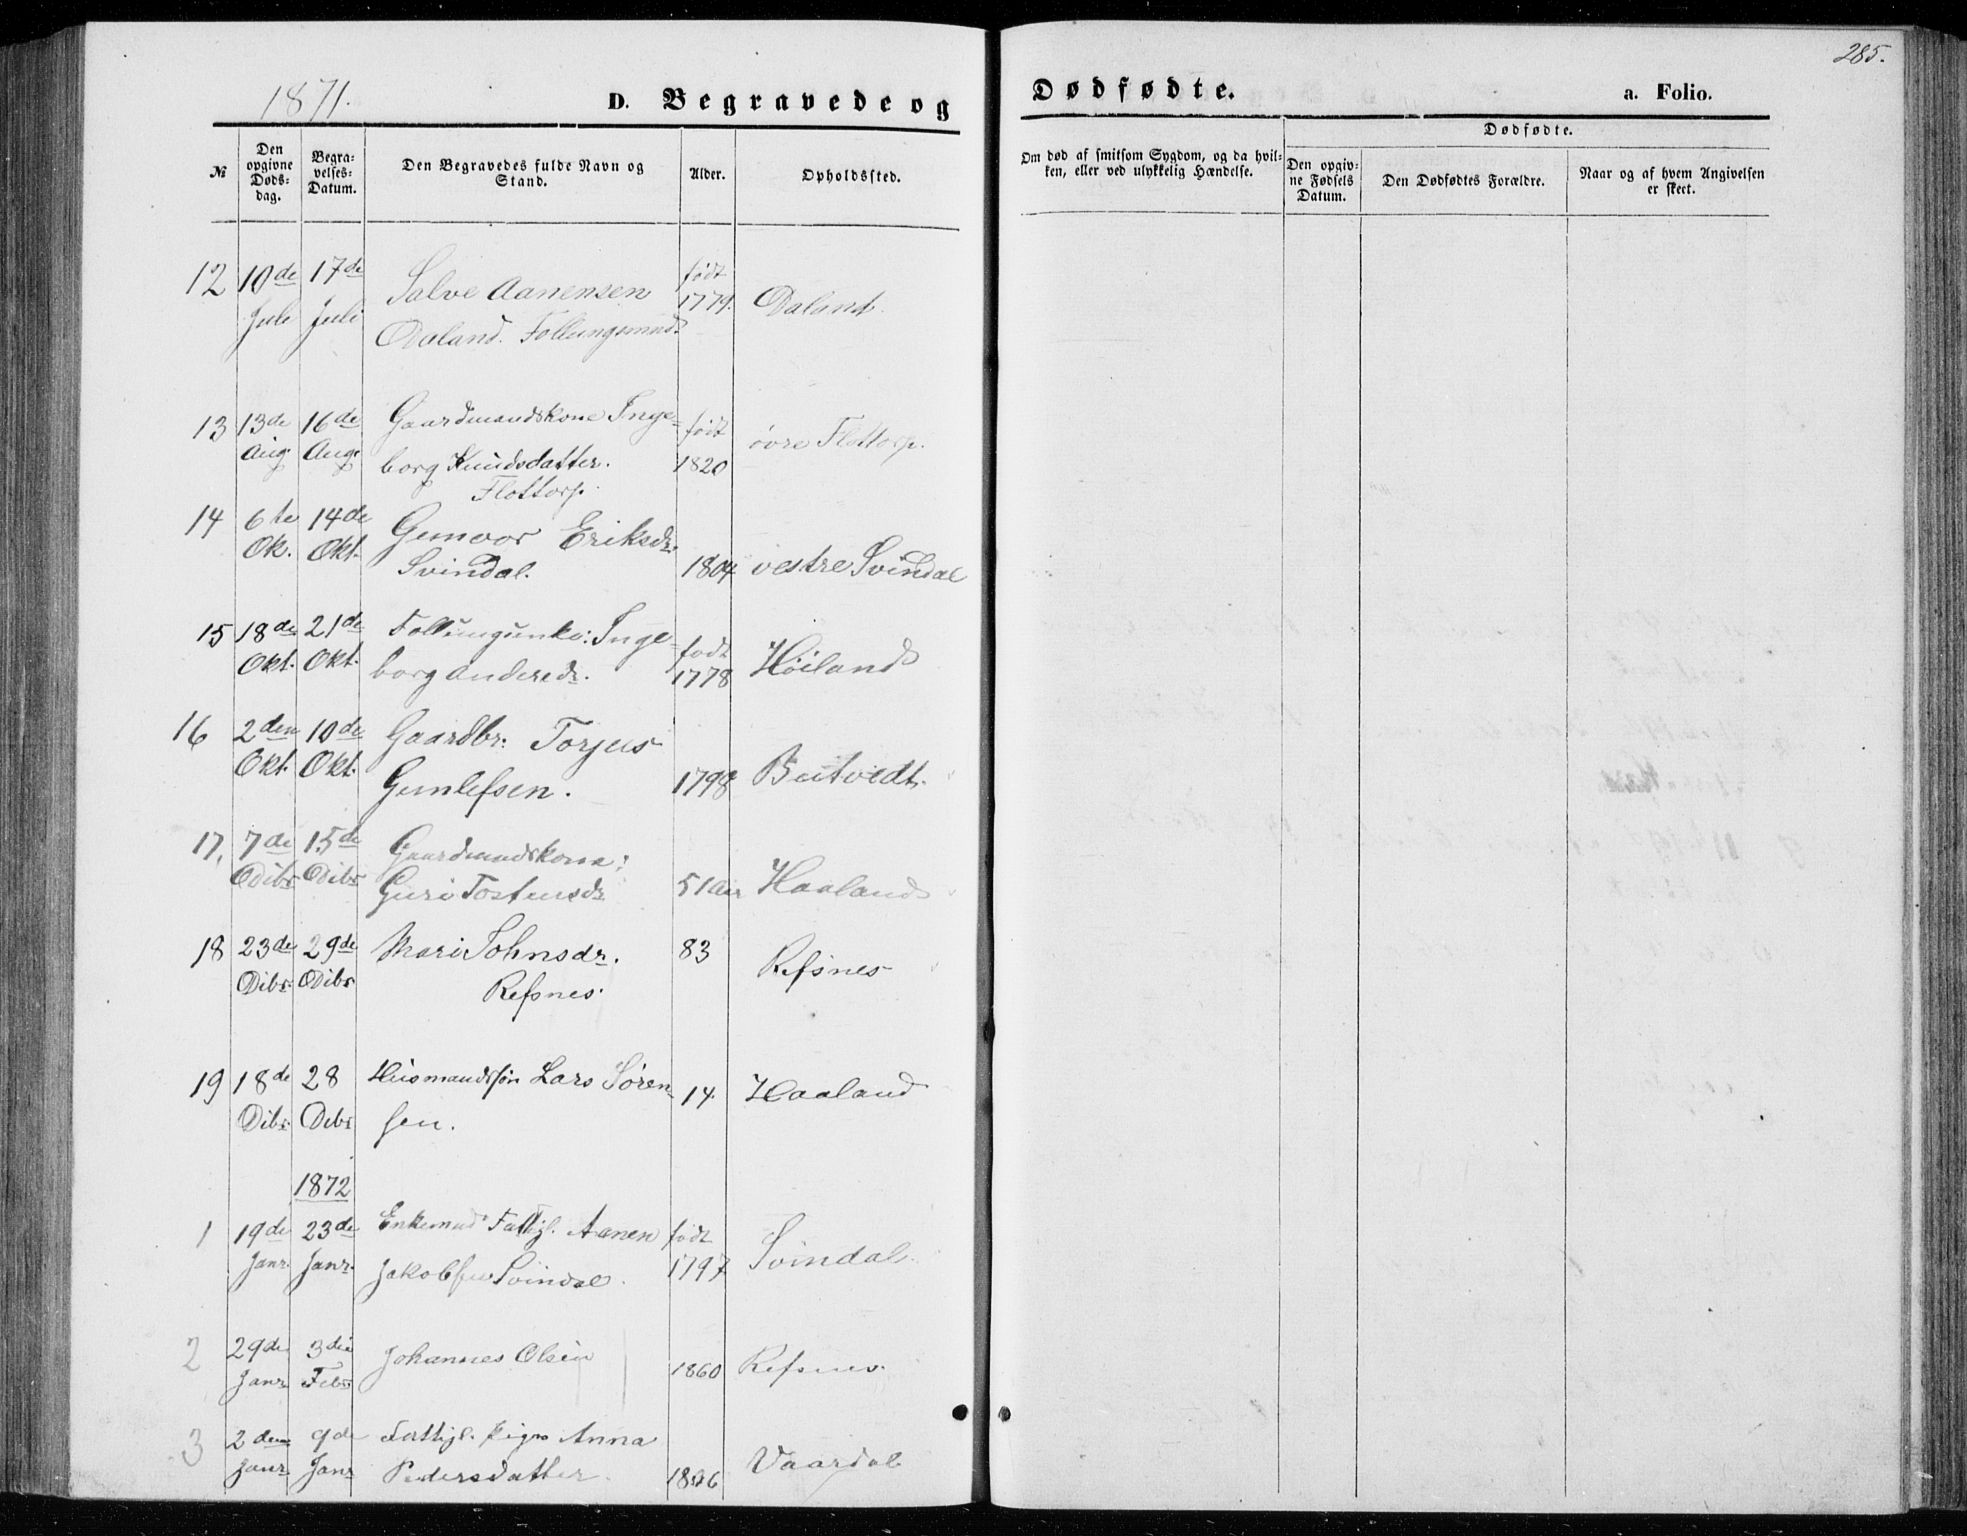 285.
1871.
D. Begravede og Dødfødte.
a. Folio.
№
Den opgivne Døds-dag.
Begra-velses-Datum.
Den Begravedes fulde Navn og Stand.
Alder.
Opholdssted.
Om død af smitsom Sygdom, og da hvil-ken, eller ved ulykkelig Hændelse.
Dødfødte.
Den opgiv-ne Fødsels Datum.
Den Dødfødtes Forældre.
Naar og af hvem Angivelsen er skeet.
12 10de 17de Salve Aanensen født
Juli Juli Daland. Follungsmand 1779. Daland.
13 13de 16de Gaardmandskone Inge- født øvre Flottorp.
Aug. Aug. borg Knudsdatter. 1820
Flottorp.
14 6te 14de Gunvor Eriksdr.
Ok. Okt. Svindal. 1804 vestre Svindal
15 18de 21de Inge- født
Okt. Okt. borg Andersdr. 1778 Høiland
16 2den 10de Gaardbr: Torjus
Okt. Okt. Gunlefsen. 1798
17. 7de 15de Gaardmandskone:
Dibr Dibr Guri Tostensdr 51 Aar Haaland
18 23de 29de Mari Johnsdr. 83 Refsnes
Dibr. Dibr Refsnes.
19 18de 28 Husmandssøn Lars Søren- 14. Haaland
Dibr. Dibr sen.
1872
1 19de 23de Enkemand Aanen født
Janr. Janr. Jakobsen Svindal. 1797 Svindal.
2 29de 3die Johannes Olsen 1860 Refsnes.
Janr Febr
3 2den 9de Anna
Janr Janr Pedersdatter. Vaardal